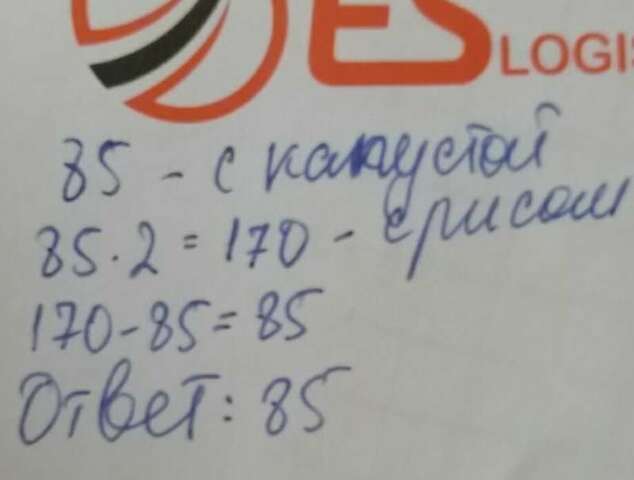 ES LOGIS
85 - с капустой
85·2 = 170 - с рисом
170-85= 85
Ответ: 85